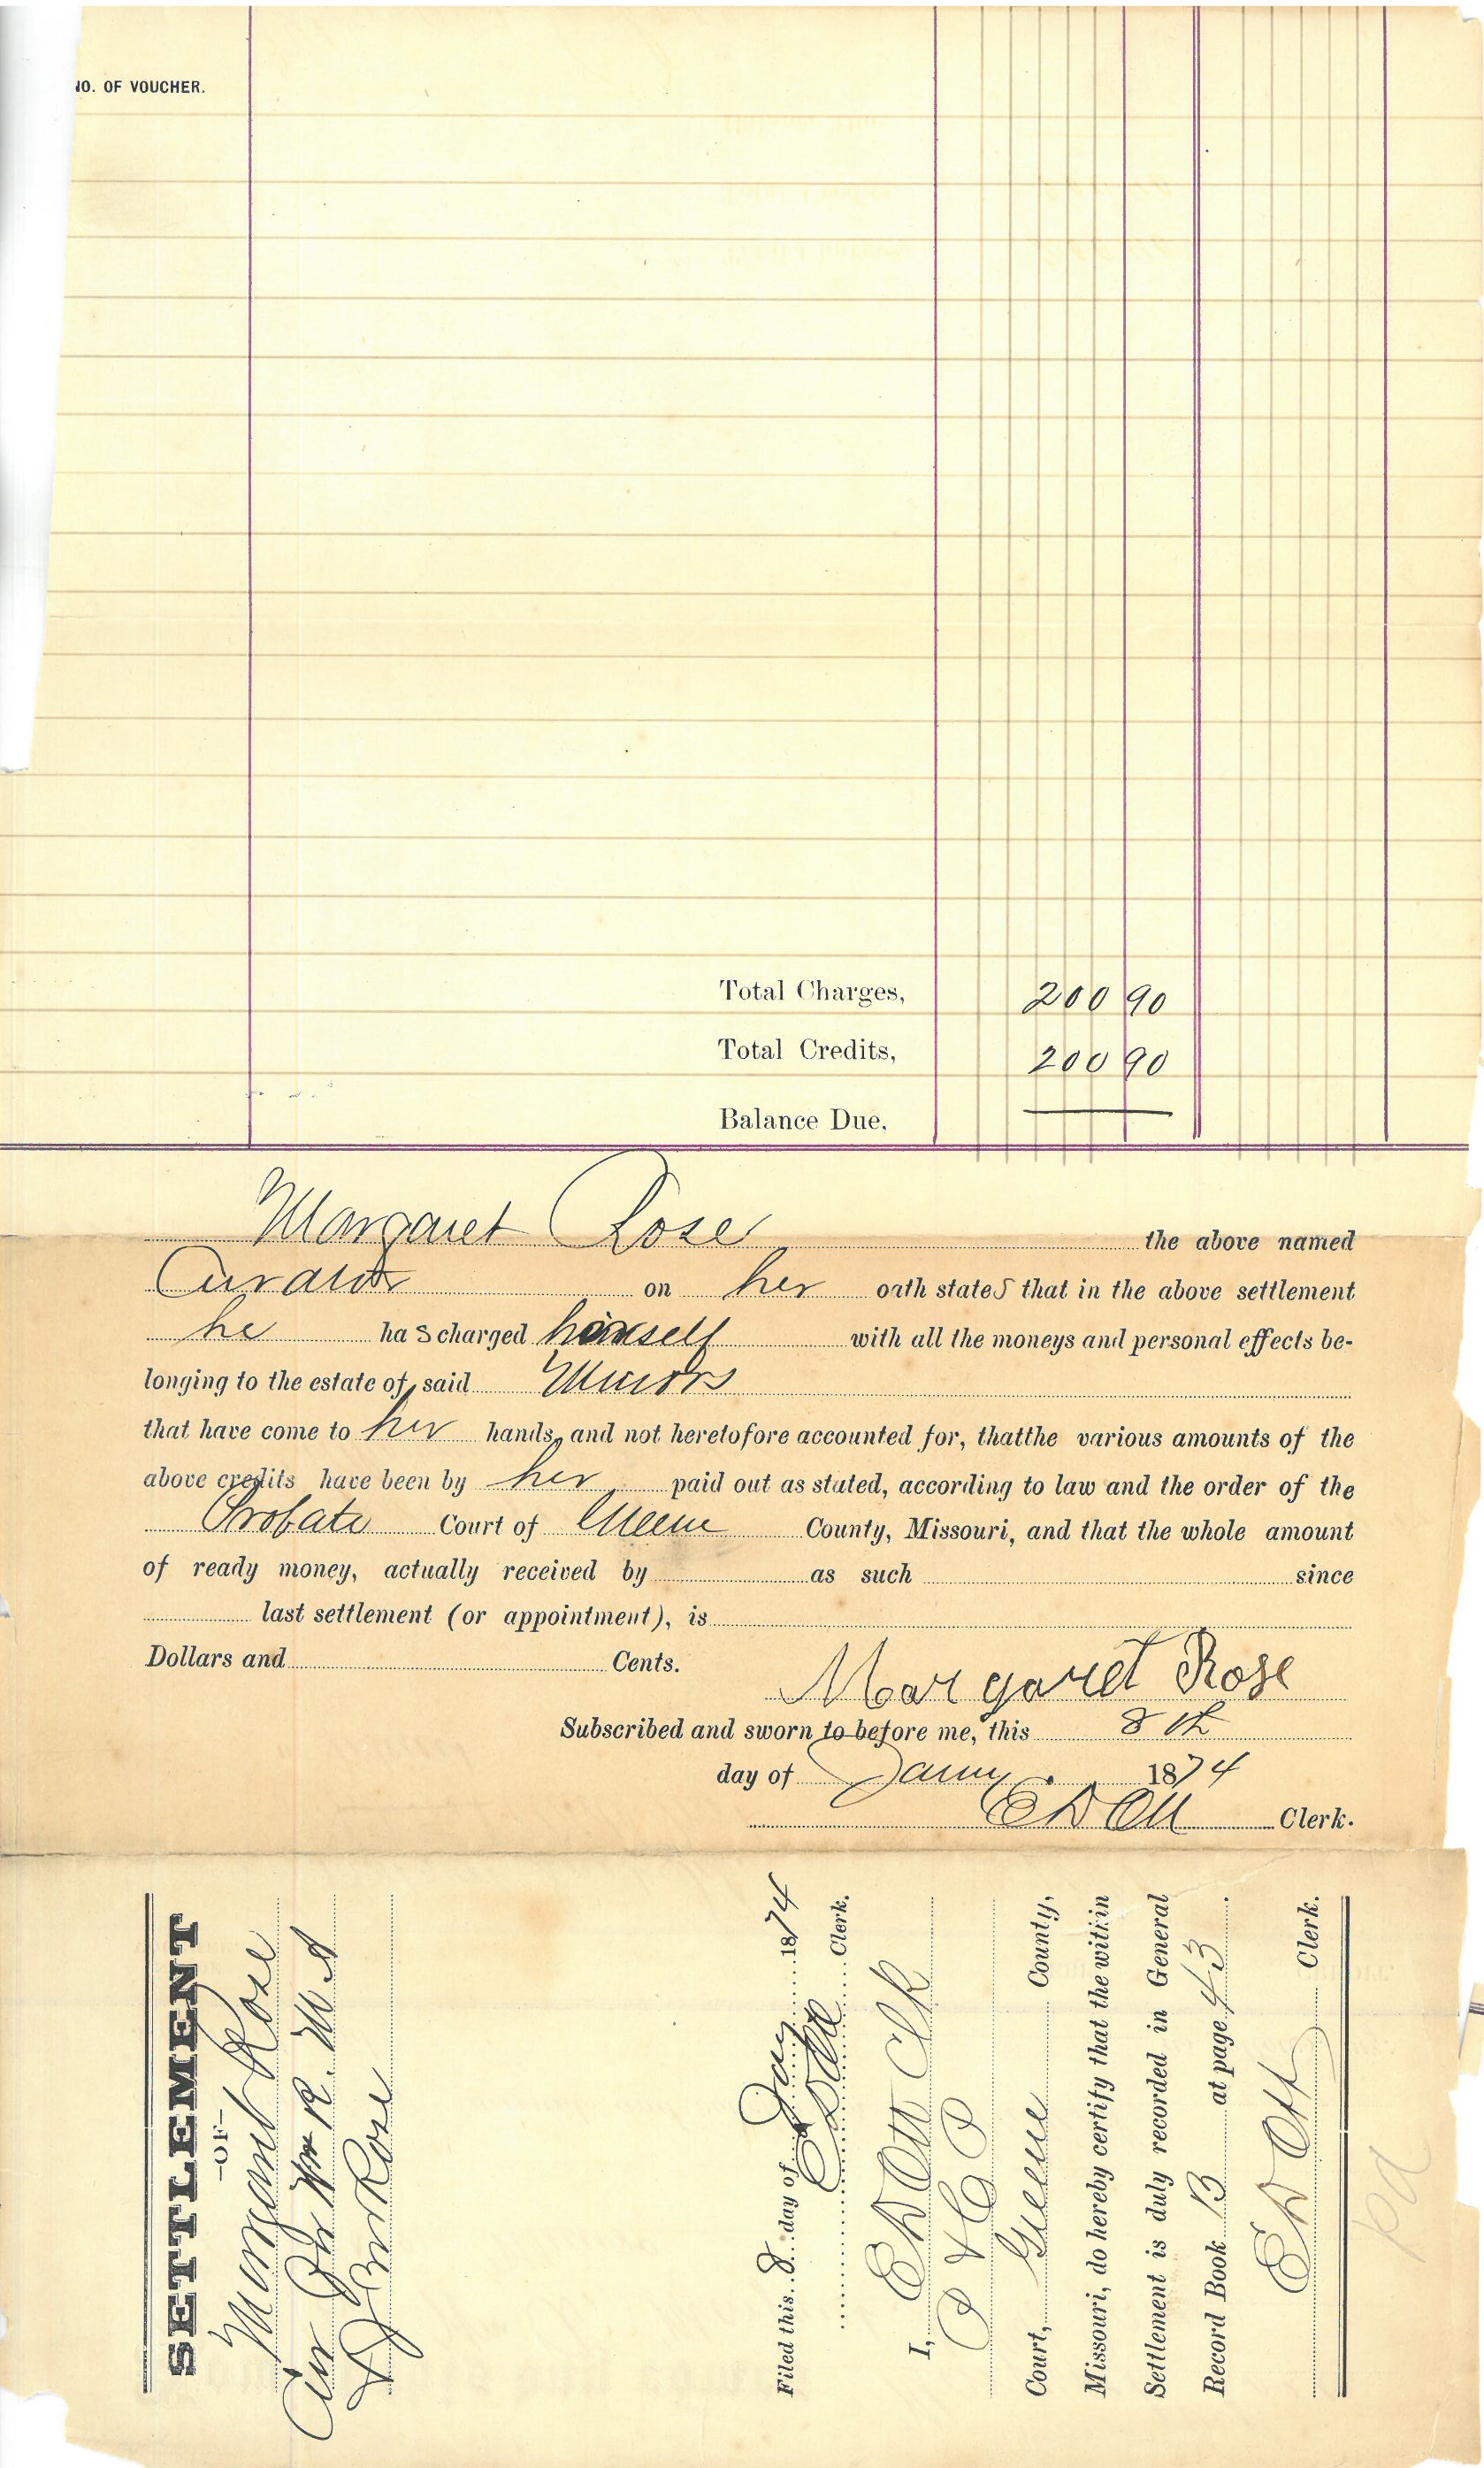 NO. OF VOUCHER.
Total Charges, 200 90
Total Credits, 200 90
Balance Due.
Margaret Rose the above named
Curator on her oath states that in the above settlement
he has charged himself with all the moneys and personal effects be-
longing to the estate of said Minors
that have come to her hands, and not heretofore accounted for, thatthe various amounts of the
above credits have been by her paid out as stated, according to law and the order of the
Probate Court of Greene County, Missouri, and that the whole amount
of ready money, actually received by as such since
last settlement (or appointment), is
Dollars and Cents.
Margaret Rose
Subscribed and sworn to before me, this 8th
day of Jany. 1874
E D Ott Clerk.
SETTLEMENT
-OF-
Margaret Rose
Cur Wm R. M A
& J Rose
Filed this 8 day of Jany 1874
E D Ott Clerk.
I, E D Ott Clk
P & C P
Court, Greene County,
Missouri, do hereby certify that the within
Settlement is duly recorded in General
Record Book B at page 43.
E D Ott Clerk.
pd